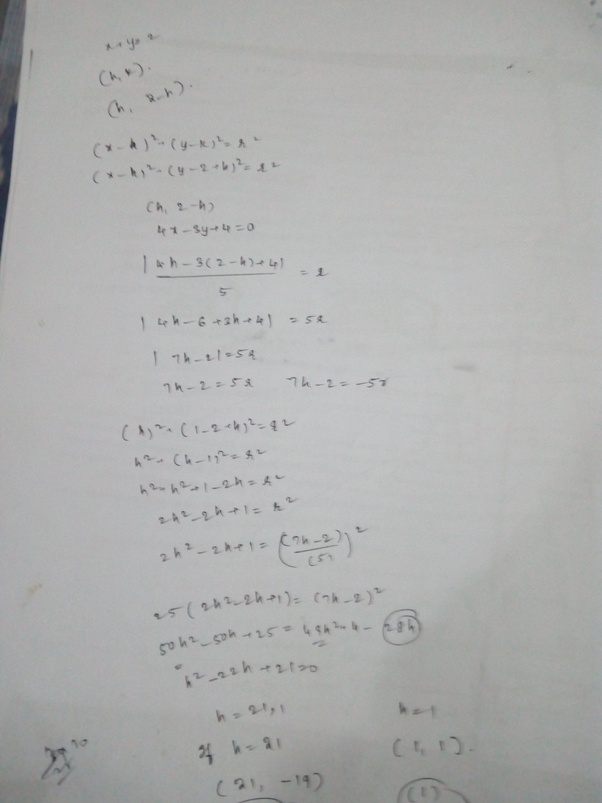 x+y=2
(h,k).
(h, 2-h).
(x-h)²+(y-k)²=r²
(x-h)²+(y-2+h)²=r²
(h, 2-h)
4x-3y+4=0
|4h-3(2-h)+4| / 5 = r
|4h-6+3h+4| = 5r
|7h-2|=5r
7h-2=5r 7h-2=-5r
(h)²+(1-2+h)²=r²
h²+(h-1)²=r²
h²+h²+1-2h=r²
2h²-2h+1=r²
2h²-2h+1=((7h-2)/(5))²
25(2h²-2h+1)=(7h-2)²
50h²-50h+25=49h²+4-28h
h²-22h+21=0
h=21,1 h=1
if h=21 (1,1).
(21, -19) (1)